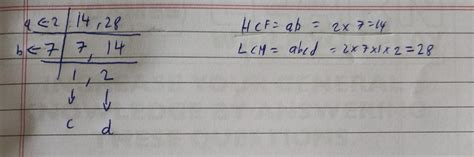 a ← 2 | 14, 28
b ← 7 | 7, 14
1, 2
↓ ↓
c d
HCF = ab = 2 x 7 = 14
LCM = abcd = 2x7x1x2 = 28